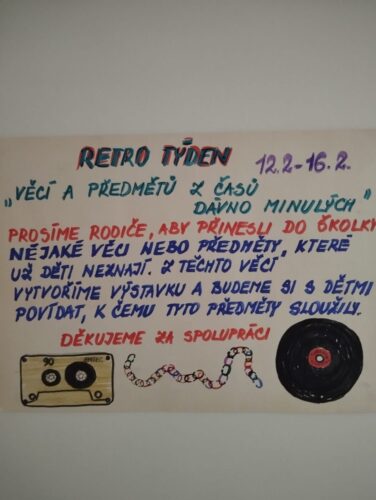 RETRO TÝDEN 12.2-16.2.
„VĚCÍ A PŘEDMĚTŮ Z ČASŮ
DÁVNO MINULÝCH"
PROSÍME RODIČE, ABY PŘINESLI DO ŠKOLKY
NĚJAKÉ VĚCI NEBO PŘEDMĚTY, KTERÉ
UŽ DĚTI NEZNAJÍ. Z TĚCHTO VĚCÍ
VYTVOŘÍME VÝSTAVKU A BUDEME SI S DĚTMI
POVÍDAT, K ČEMU TYTO PŘEDMĚTY SLOUŽILY.
DĚKUJEME ZA SPOLUPRÁCI
90